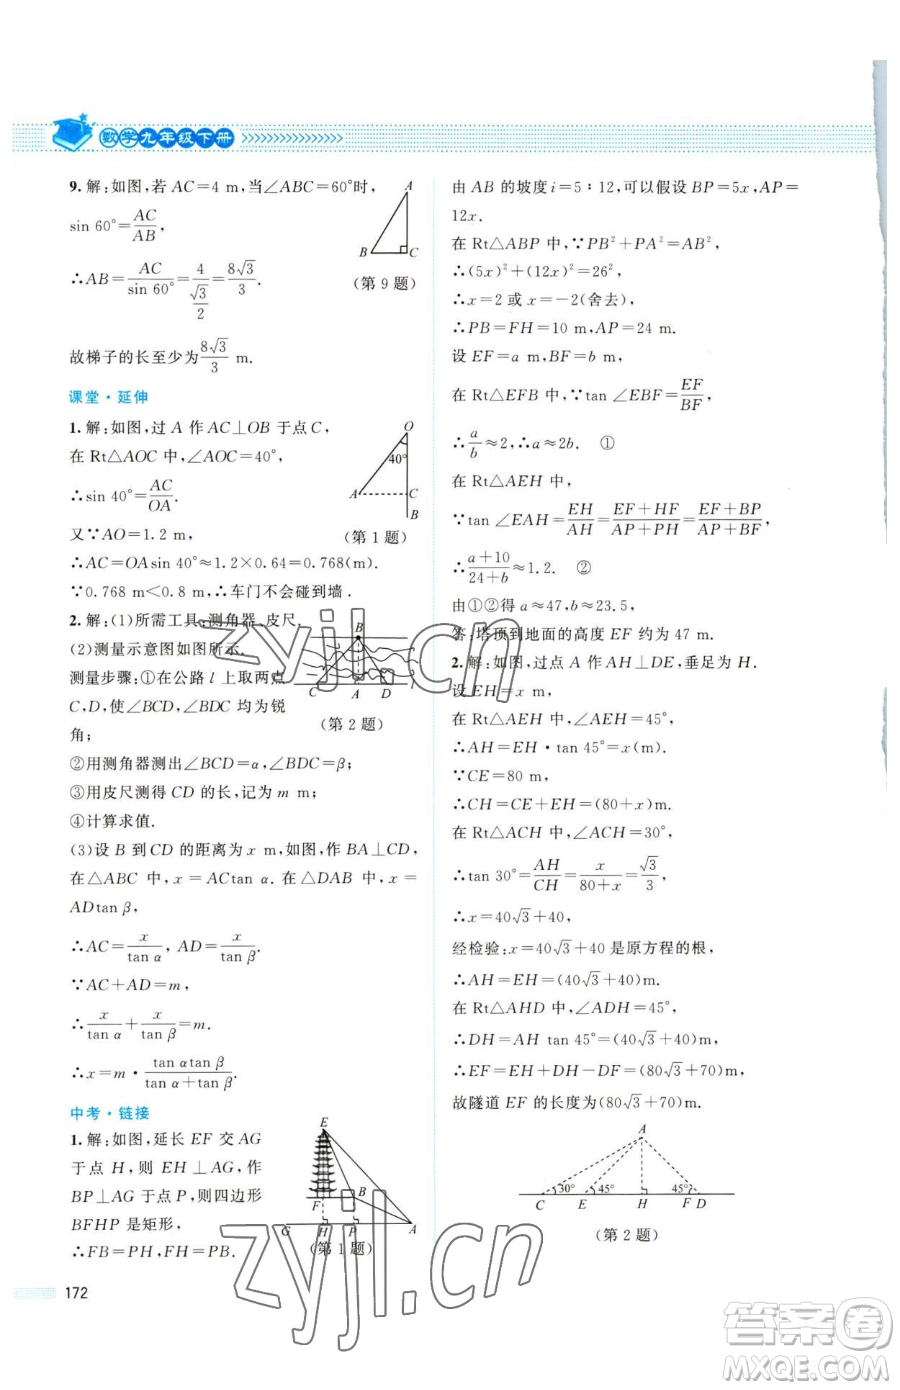 数学九年级下册
9. 解:如图,若 AC=4 m,当∠ABC=60°时,
sin 60°=AC/AB,
∴AB=AC/sin 60°=4/(√3/2)=8√3/3.
A
B
C
(第 9 题)
故梯子的长至少为8√3/3 m.
课堂·延伸
1. 解:如图,过 A 作 AC⊥OB 于点 C,
在 Rt△AOC 中,∠AOC=40°,
∴sin 40°=AC/OA.
又∵AO=1.2 m,
O
40°
A
C
B
(第 1 题)
∴AC=OAsin 40°≈1.2×0.64=0.768(m).
∵0.768 m<0.8 m,∴车门不会碰到墙.
2. 解:(1)所需工具:测角器、皮尺.
(2)测量示意图如图所示.
测量步骤:①在公路 l 上取两点
C,D,使∠BCD,∠BDC 均为锐
角;
B
C
A
D
(第 2 题)
②用测角器测出∠BCD=α,∠BDC=β;
③用皮尺测得 CD 的长,记为 m m;
④计算求值.
(3)设 B 到 CD 的距离为 x m,如图,作 BA⊥CD,
在△ABC 中,x=ACtan α. 在△DAB 中,x=
ADtan β,
∴AC=x/tan α, AD=x/tan β.
∵AC+AD=m,
∴x/tan α+x/tan β=m.
∴x=m·tan αtan β/(tan α+tan β).
中考·链接
1. 解:如图,延长 EF 交 AG
于点 H,则 EH⊥AG,作
BP⊥AG 于点 P,则四边形
BFHP 是矩形,
∴FB=PH,FH=PB.
E
F
B
G
H
P
A
(第 1 题)
172
由 AB 的坡度 i=5∶12,可以假设 BP=5x,AP=
12x.
在 Rt△ABP 中,∵PB²+PA²=AB²,
∴(5x)²+(12x)²=26²,
∴x=2 或 x=-2(舍去),
∴PB=FH=10 m,AP=24 m.
设 EF=a m,BF=b m,
在 Rt△EFB 中,∵tan ∠EBF=EF/BF,
∴a/b≈2,∴a≈2b. ①
在 Rt△AEH 中,
∵tan ∠EAH=EH/AH=(EF+HF)/(AP+PH)=(EF+BP)/(AP+BF),
∴(a+10)/(24+b)≈1.2. ②
由①②得 a≈47,b≈23.5,
答:塔顶到地面的高度 EF 约为 47 m.
2. 解:如图,过点 A 作 AH⊥DE,垂足为 H.
设 EH=x m,
在 Rt△AEH 中,∠AEH=45°,
∴AH=EH·tan 45°=x(m).
∵CE=80 m,
∴CH=CE+EH=(80+x)m.
在 Rt△ACH 中,∠ACH=30°,
∴tan 30°=AH/CH=x/(80+x)=√3/3,
∴x=40√3+40,
经检验:x=40√3+40 是原方程的根,
∴AH=EH=(40√3+40)m.
在 Rt△AHD 中,∠ADH=45°,
∴DH=AH tan 45°=(40√3+40)m,
∴EF=EH+DH-DF=(80√3+70)m,
故隧道 EF 的长度为(80√3+70)m.
A
30°
45°
45°
C
E
H
F D
(第 2 题)
zyjl.cn
zyjl.cn
答案圈
MXQE.COM